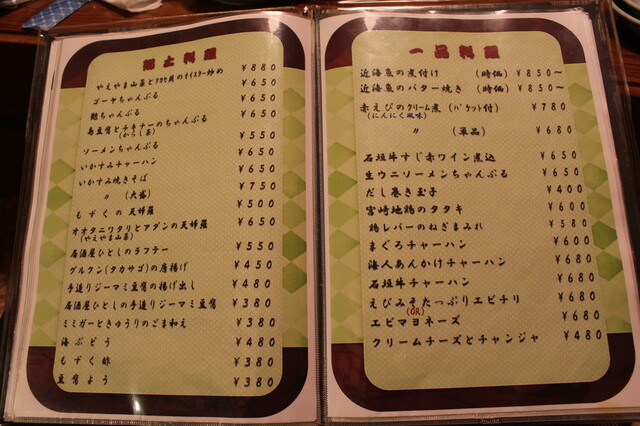 郷土料理
やえやま山菜とタカセ貝のオイスター炒め ¥880
ゴーヤちゃんぷる ¥650
麩ちゃんぷる ¥650
島豆腐とチキナーのちゃんぷる ¥650
(からし菜)
ソーメンちゃんぷる ¥550
いかすみチャーハン ¥650
いかすみ焼きそば ¥650
〃 (大盛) ¥750
もずくの天婦羅 ¥500
オオタニワタリとアダンの天婦羅 ¥650
(やえやま山菜)
居酒屋ひとしのラフテー ¥550
グルクン(タカサゴ)の唐揚げ ¥450
手造りジーマミ豆腐の揚げ出し ¥480
居酒屋ひとしの手造りジーマミ豆腐 ¥380
ミミガーときゅうりのごま和え ¥380
海ぶどう ¥480
もずく酢 ¥380
豆腐よう ¥380
一品料理
近海魚の煮付け (時価) ¥850〜
近海魚のバター焼き (時価) ¥850〜
赤えびのクリーム煮 (バケット付) ¥780
(にんにく風味)
〃 (単品) ¥680
石垣牛すじ赤ワイン煮込 ¥650
生ウニソーメンちゃんぷる ¥650
だし巻き玉子 ¥400
宮崎地鶏のタタキ ¥600
鶏レバーのねぎまみれ ¥580
まぐろチャーハン ¥600
海人あんかけチャーハン ¥680
石垣牛チャーハン ¥680
えびみそたっぷりエビチリ ¥680
(OR)
エビマヨネーズ ¥680
クリームチーズとチャンジャ ¥480